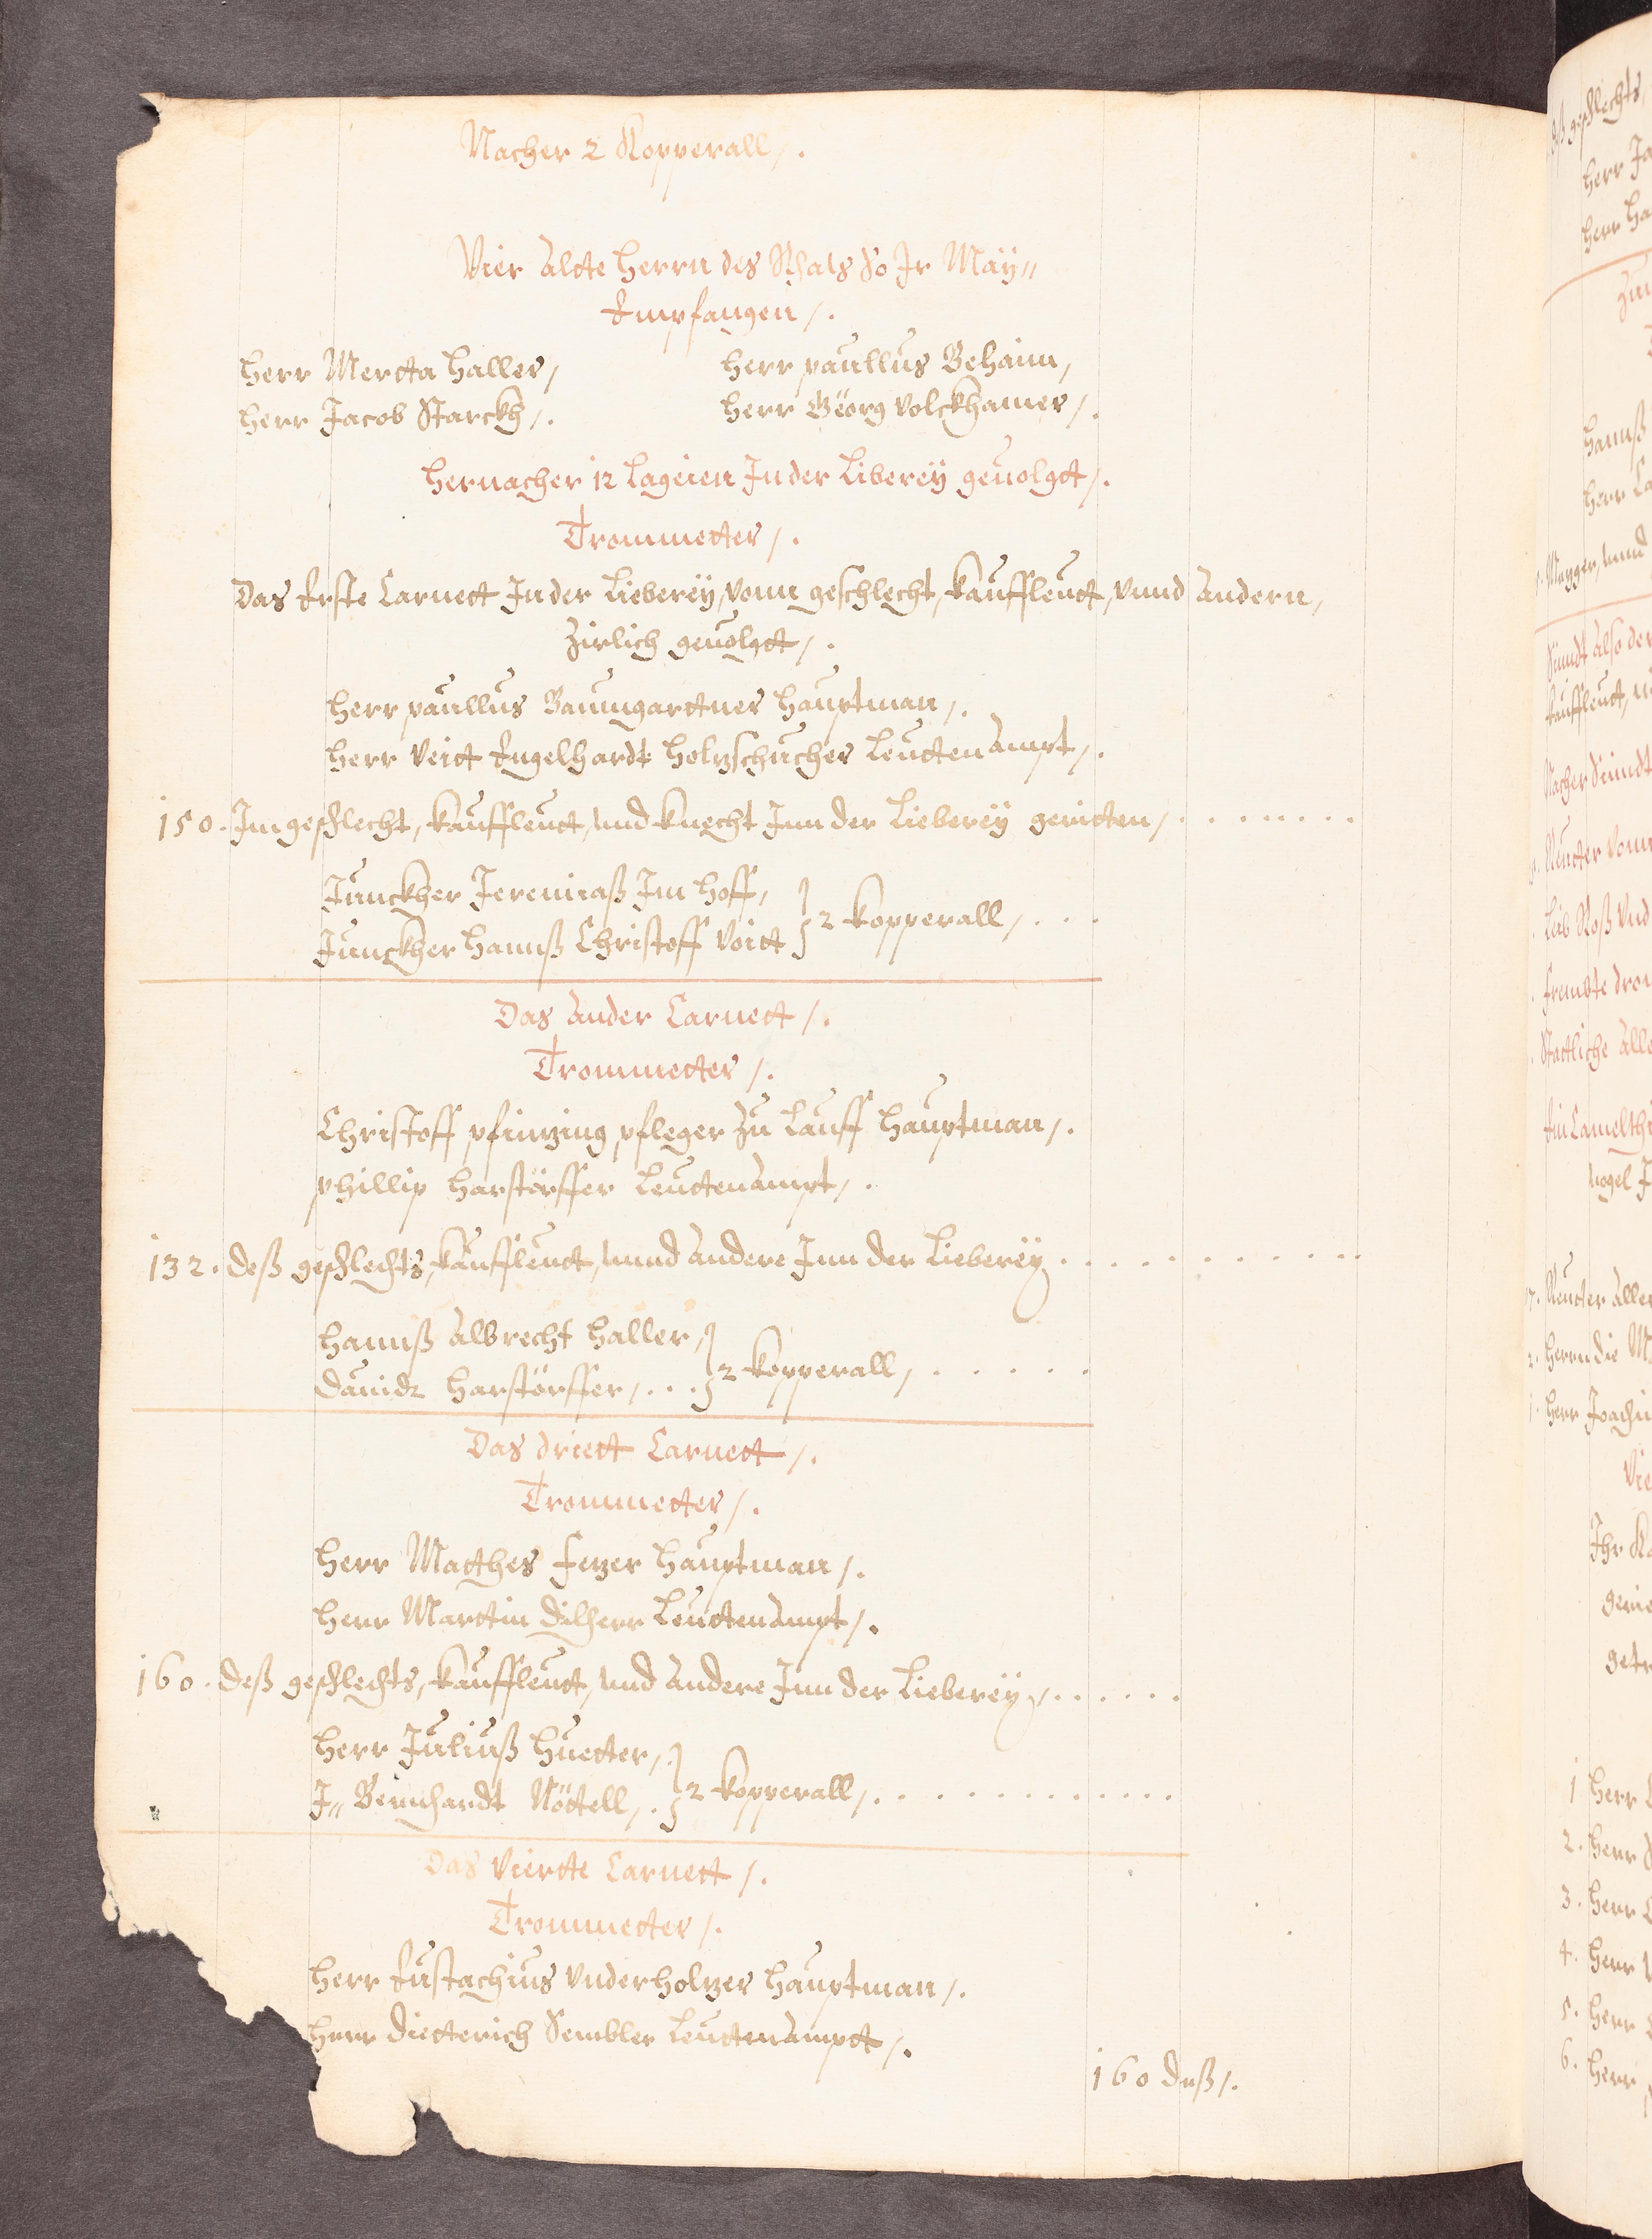 Nacher 2 Kopperall /.
Vier Alte Herrn des Rhats So Ir May //
Empfangen /.
Herr Mertta Haller /
Herr Paullus Behaim,
Herr Jacob Starckh /.
Herr Georg Volckhamer /.
Hernacher 12 Lageien In der Liberey geuolgtt /.
Trommetter /.
Das Erste Carnett In der Lieberey, vonn geschlecht, Kauffleutt, vnnd Andern,
Zirlich geuolgtt /.
Herr Paullus Baumgarttner Hauptman /.
Herr Veitt Engelhardt Holtzschucher Leuttenampt /.
150. Im geschlecht, Kauffleutt, vnd Knecht Inn der Lieberey geritten / . . . . . . . .
Junckher Jeremiaß Im Hoff,
Junckher Hannß Christoff Voitt } 2 Kopperall / . . . .
Das Ander Carnett /.
Trommetter /.
Christoff Pfintzing Pfleger Zu Lauff Hauptman /.
Phillip Harstörffer Leuttenampt /.
132. Deß geschlechts, Kauffleutt, vnnd Andere Inn der Lieberey . . . . . . . . . . . .
Hannß Albrecht Haller /
Dauidt Harstörffer / . . . } 2 Kopperall / . . . . . .
Das driett Carnett /.
Trommetter /.
Herr Matthes Fetzer Hauptman /.
Herr Marttin Dilherr Leuttenampt /.
160. Deß geschlechts, Kauffleutt, vnd Andere Inn der Lieberey / . . . . . .
Herr Juliuß Huetter /
J// Bernhardt Nöttell / . } 2 Kopperall / . . . . . . . . . . . .
Das Viertte Carnett /.
Trommetter /.
Herr Eustachius Vnderholtzer Hauptman /.
Herr Dietterich Sembler Leuttenamptt /.
160 Deß /.